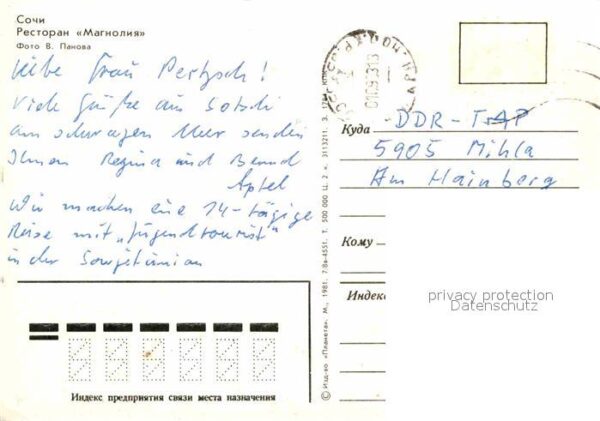 Сочи
Ресторан «Магнолия»
Фото В. Панова
Liebe Frau Pertzsch!
Viele Grüße aus Sotschi
am schwarzen Meer senden
Ihnen Regina und Bernd
Apfel
Wir machen eine 14-tägige
Reise mit „Jugendtourist“
in der Sowjetunion
Куда DDR-
5905 Mihla
Am Hainberg
Кому
Индекс
privacy protection
Datenschutz
Индекс предприятия связи места назначения
© Изд-во «Планета». М., 1981. 7-8в-4551. Т. 500 000 Ц. 2 к. 3113211. З.